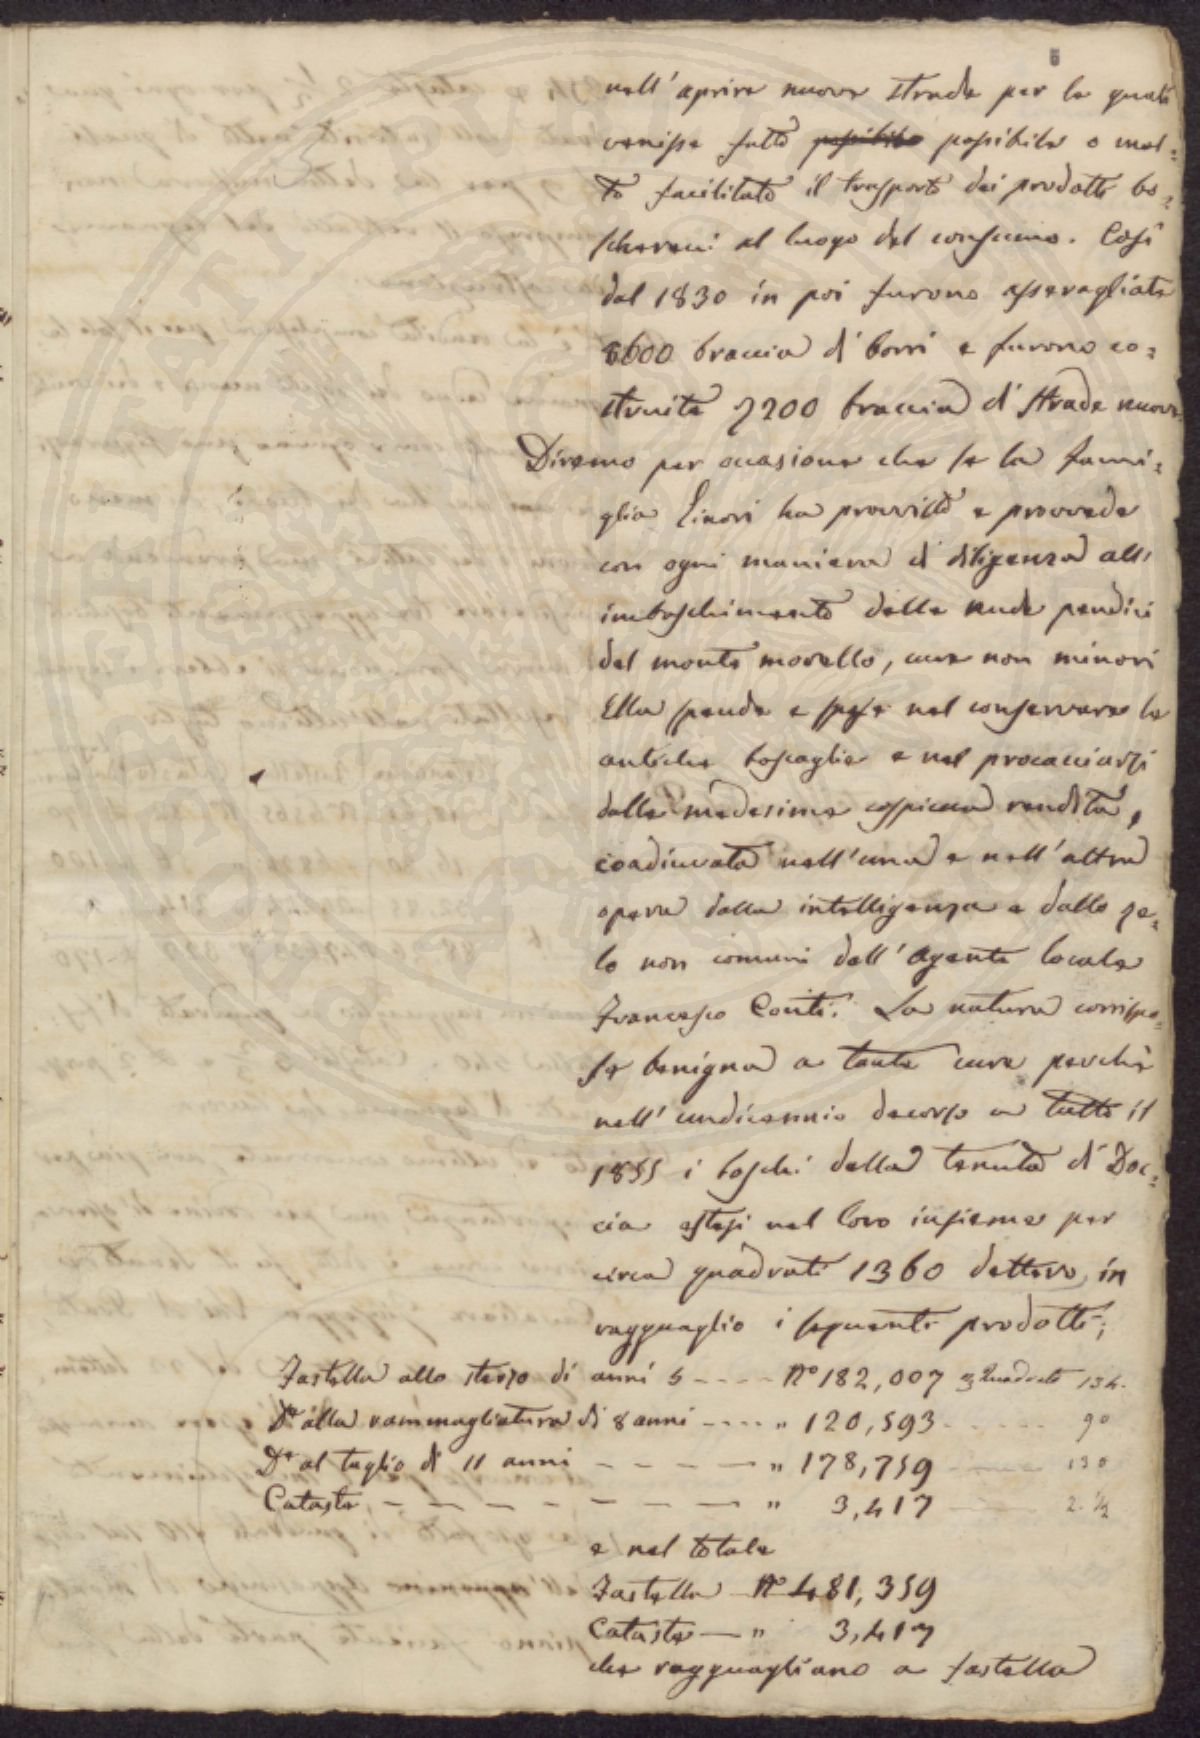 6
nell'aprire nuove strade per le quali
venisse fatto possibile possibile o mol-
to facilitato il trasporto dei prodotti bo-
scherecci al luogo del consumo. Così
dal 1830 in poi furono asserragliate
3600 braccia di borri e furono co-
struite 7200 braccia di strade nuove
Diremo per occasione che se la fami-
glia Ginori ha provvisto e provvede
con ogni maniera di diligenza all'
imboschimento delle nude pendici
del monte morello, cure non minori
Ella spende e spese nel conservare le
antiche boscaglie e nel procacciarsi
dalle medesime cospicua rendita,
coadiuvata nell'una e nell'altra
opera dalla intelligenza e dallo ze-
lo non comuni dell'agente locale
Francesco Conti. La natura corrispo-
se benigna a tante cure perchè
nell'undicennio decorso a tutto il
1855 i boschi della tenuta di Doc-
cia estesi nel loro insieme per
circa quadrati 1360 dettero, in
ragguaglio i seguenti prodotti;
Fastella allo sterzo di anni 5 ---- No 182,007 Quadrato 134.
Da alla rammagliatura di 8 anni ---- " 120,593 ---- 90
De al taglio di 11 anni ---- " 178,759 ---- 130
Cataste ---- " 3,417 ---- 2. 1/2
e nel totale
Fastella No 481,359
Cataste — " 3,417
che ragguagliano a fastella